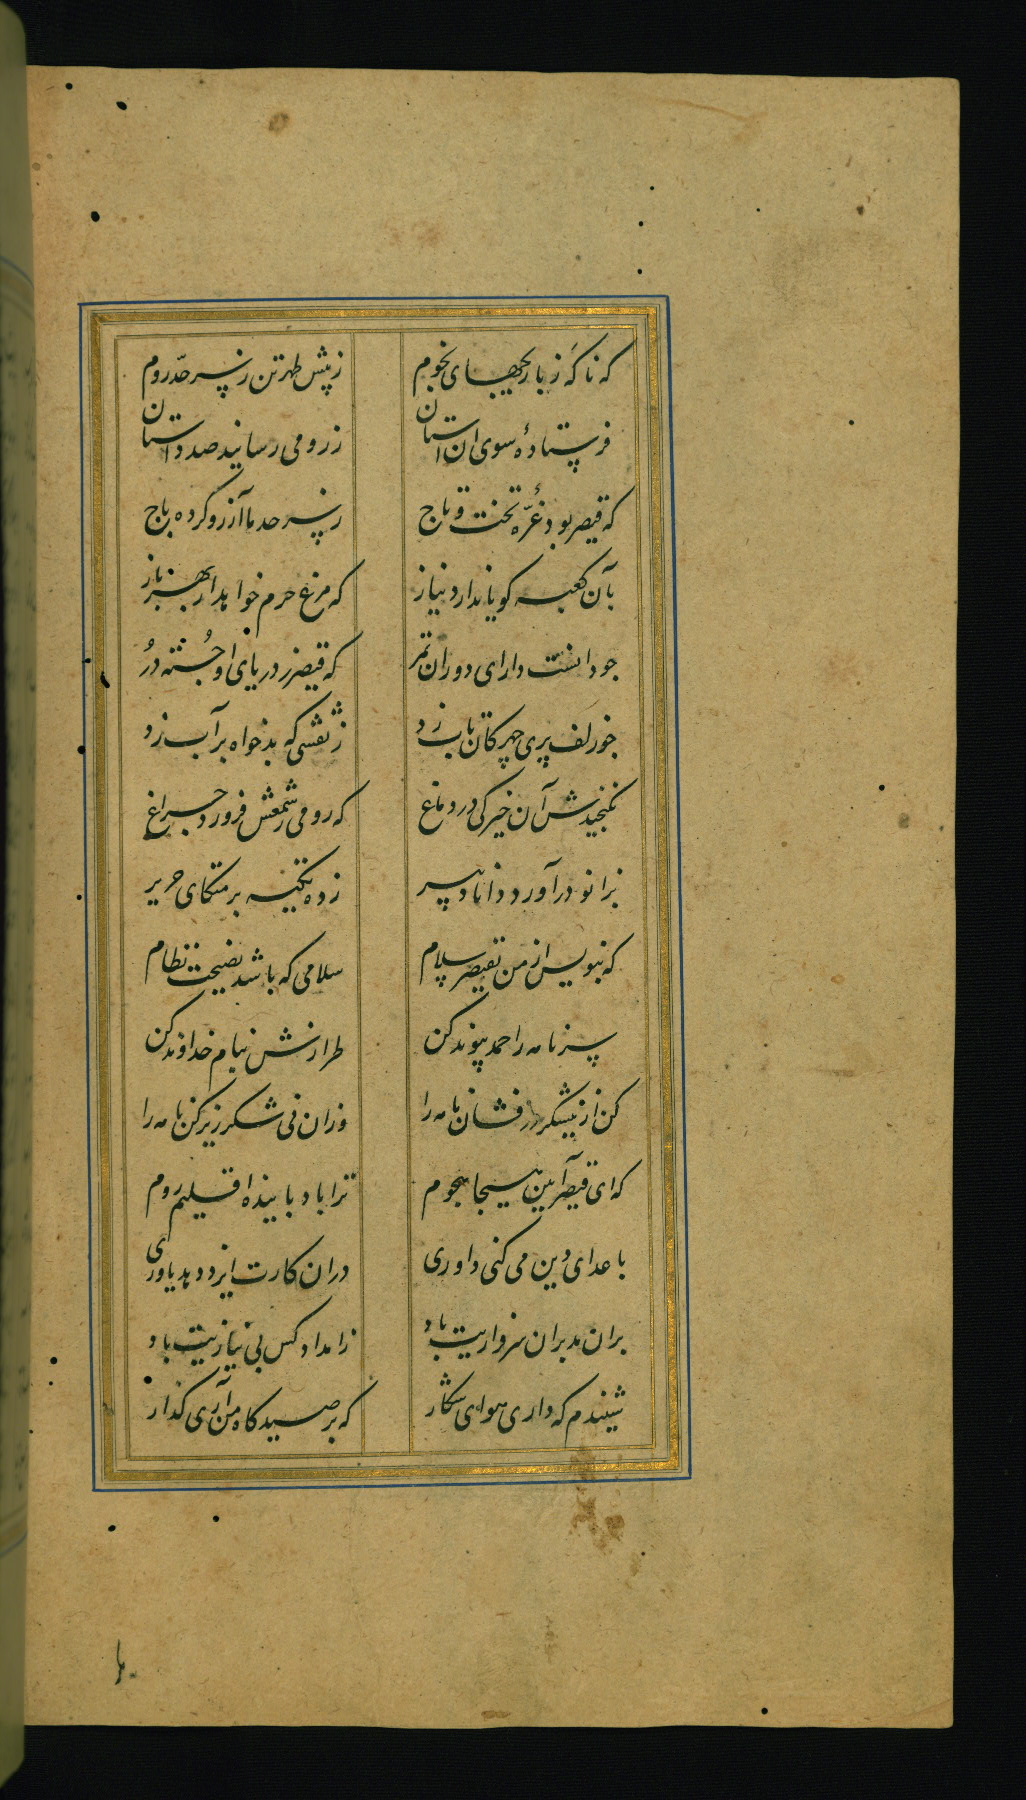 که ناگه ز بازیچهای نجوم ز پیش طهرتن ز سرحد روم
فرستادهٔ سوی ان استان ز رومی رسانید صد داستان
که قیصر بود غرّهٔ تخت و تاج ز سرحد ما آرزو کرده باج
بآن کعبه گویا ندارد نیاز که مرغ حرم خواهد از بهر باز
چو دانست دارای دوران تمر که قیصر ز دریای او جُسته دُر
چو زلف پری چهرگان تاب زد ز نقشی که بدخواه بر آب زد
نگنجیدش آن خیرگی در دماغ که رومی ز شمعش فروزد چراغ
بزانو درآورد دانا دبیر زده تکیه بر متکای حریر
که بنویس از من بقیصر سلام سلامی که باشد نصیحت نظام
سر نامه را حمد پیوند کن طرازش بنام خداوند کن
کن از نیشکر در فشان نامه را وزان نی شکرریز کن نامه را
که ای قیصر آیین مسیحا هجوم ترا باد پاینده اقلیم روم
با عدای دین می کنی داوری دران کارت ایزد دهد یاوری
بران مدبران سرفرازیت باد ز امداد کس بی نیازیت باد
شنیدم که داری هوای شکار که بر صیدگاه من آری گذار